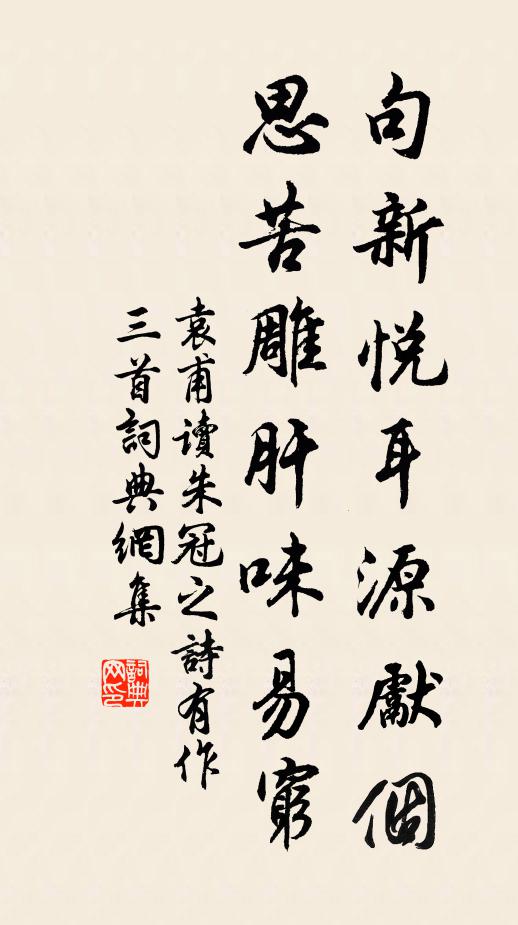 句新悅耳源獻個
思苦雕肝味易窮
袁甫讀朱冠之詩有作
三首詞典網集
詞典
网印